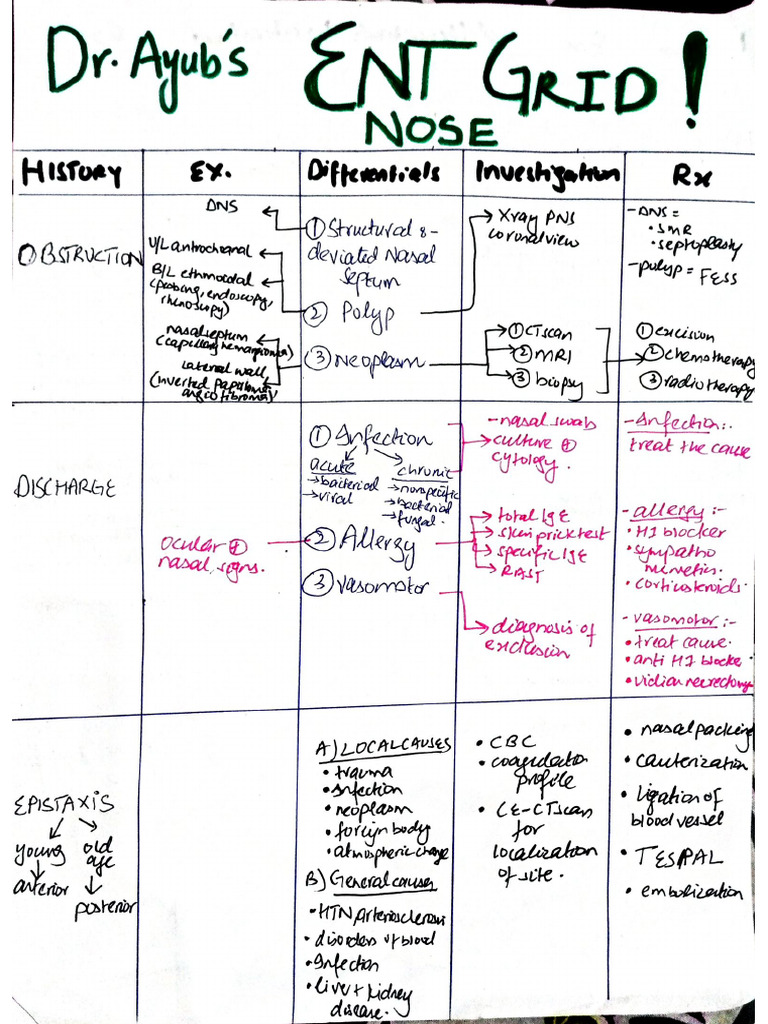 Dr. Ayub's ENT GRID!
NOSE
HISTORY
EX.
Differentials
Investigation
Rx
OBSTRUCTION
DNS
U/L antrochoanal
B/L ethmoidal
(probing, endoscopy,
rhinoscopy)
nasal septum
(capillary hemangioma)
lateral wall
(inverted papilloma,
angiofibroma)
① Structural :-
deviated Nasal
septum
② Polyp
③ Neoplasm
Xray PNS
coronal view
① CT scan
② MRI
③ biopsy
- DNS =
• SMR
• septoplasty
- polyp = FESS
① excision
② chemotherapy
③ radiotherapy
DISCHARGE
ocular &
nasal signs.
① Infection
acute
→ bacterial
→ viral
chronic
→ nonspecific
→ bacterial
→ fungal.
② Allergy
③ vasomotor
- nasal swab
culture &
cytology.
total IgE
skin prick test
specific IgE
RAST
diagnosis of
exclusion
- Infection:-
treat the cause
- allergy:-
• H1 blocker
• sympatho
mimetics.
• corticosteroids.
- vasomotor:-
• treat cause.
• anti H1 blocke
• vidian neurectomy
EPISTAXIS
young
old
age
anterior
posterior
A) LOCAL CAUSES
• trauma
• Infection
• neoplasm
• foreign body
• atmospheric change
B) General causes
• HTN arteriosclerosis
• disorders of blood
• Infection
• liver + kidney
disease.
• CBC
• coagulation
profile
• CE-CT scan
for
localization
of site.
• nasal packing
• cauterization
• ligation of
blood vessel
• TESPAL
• embolization